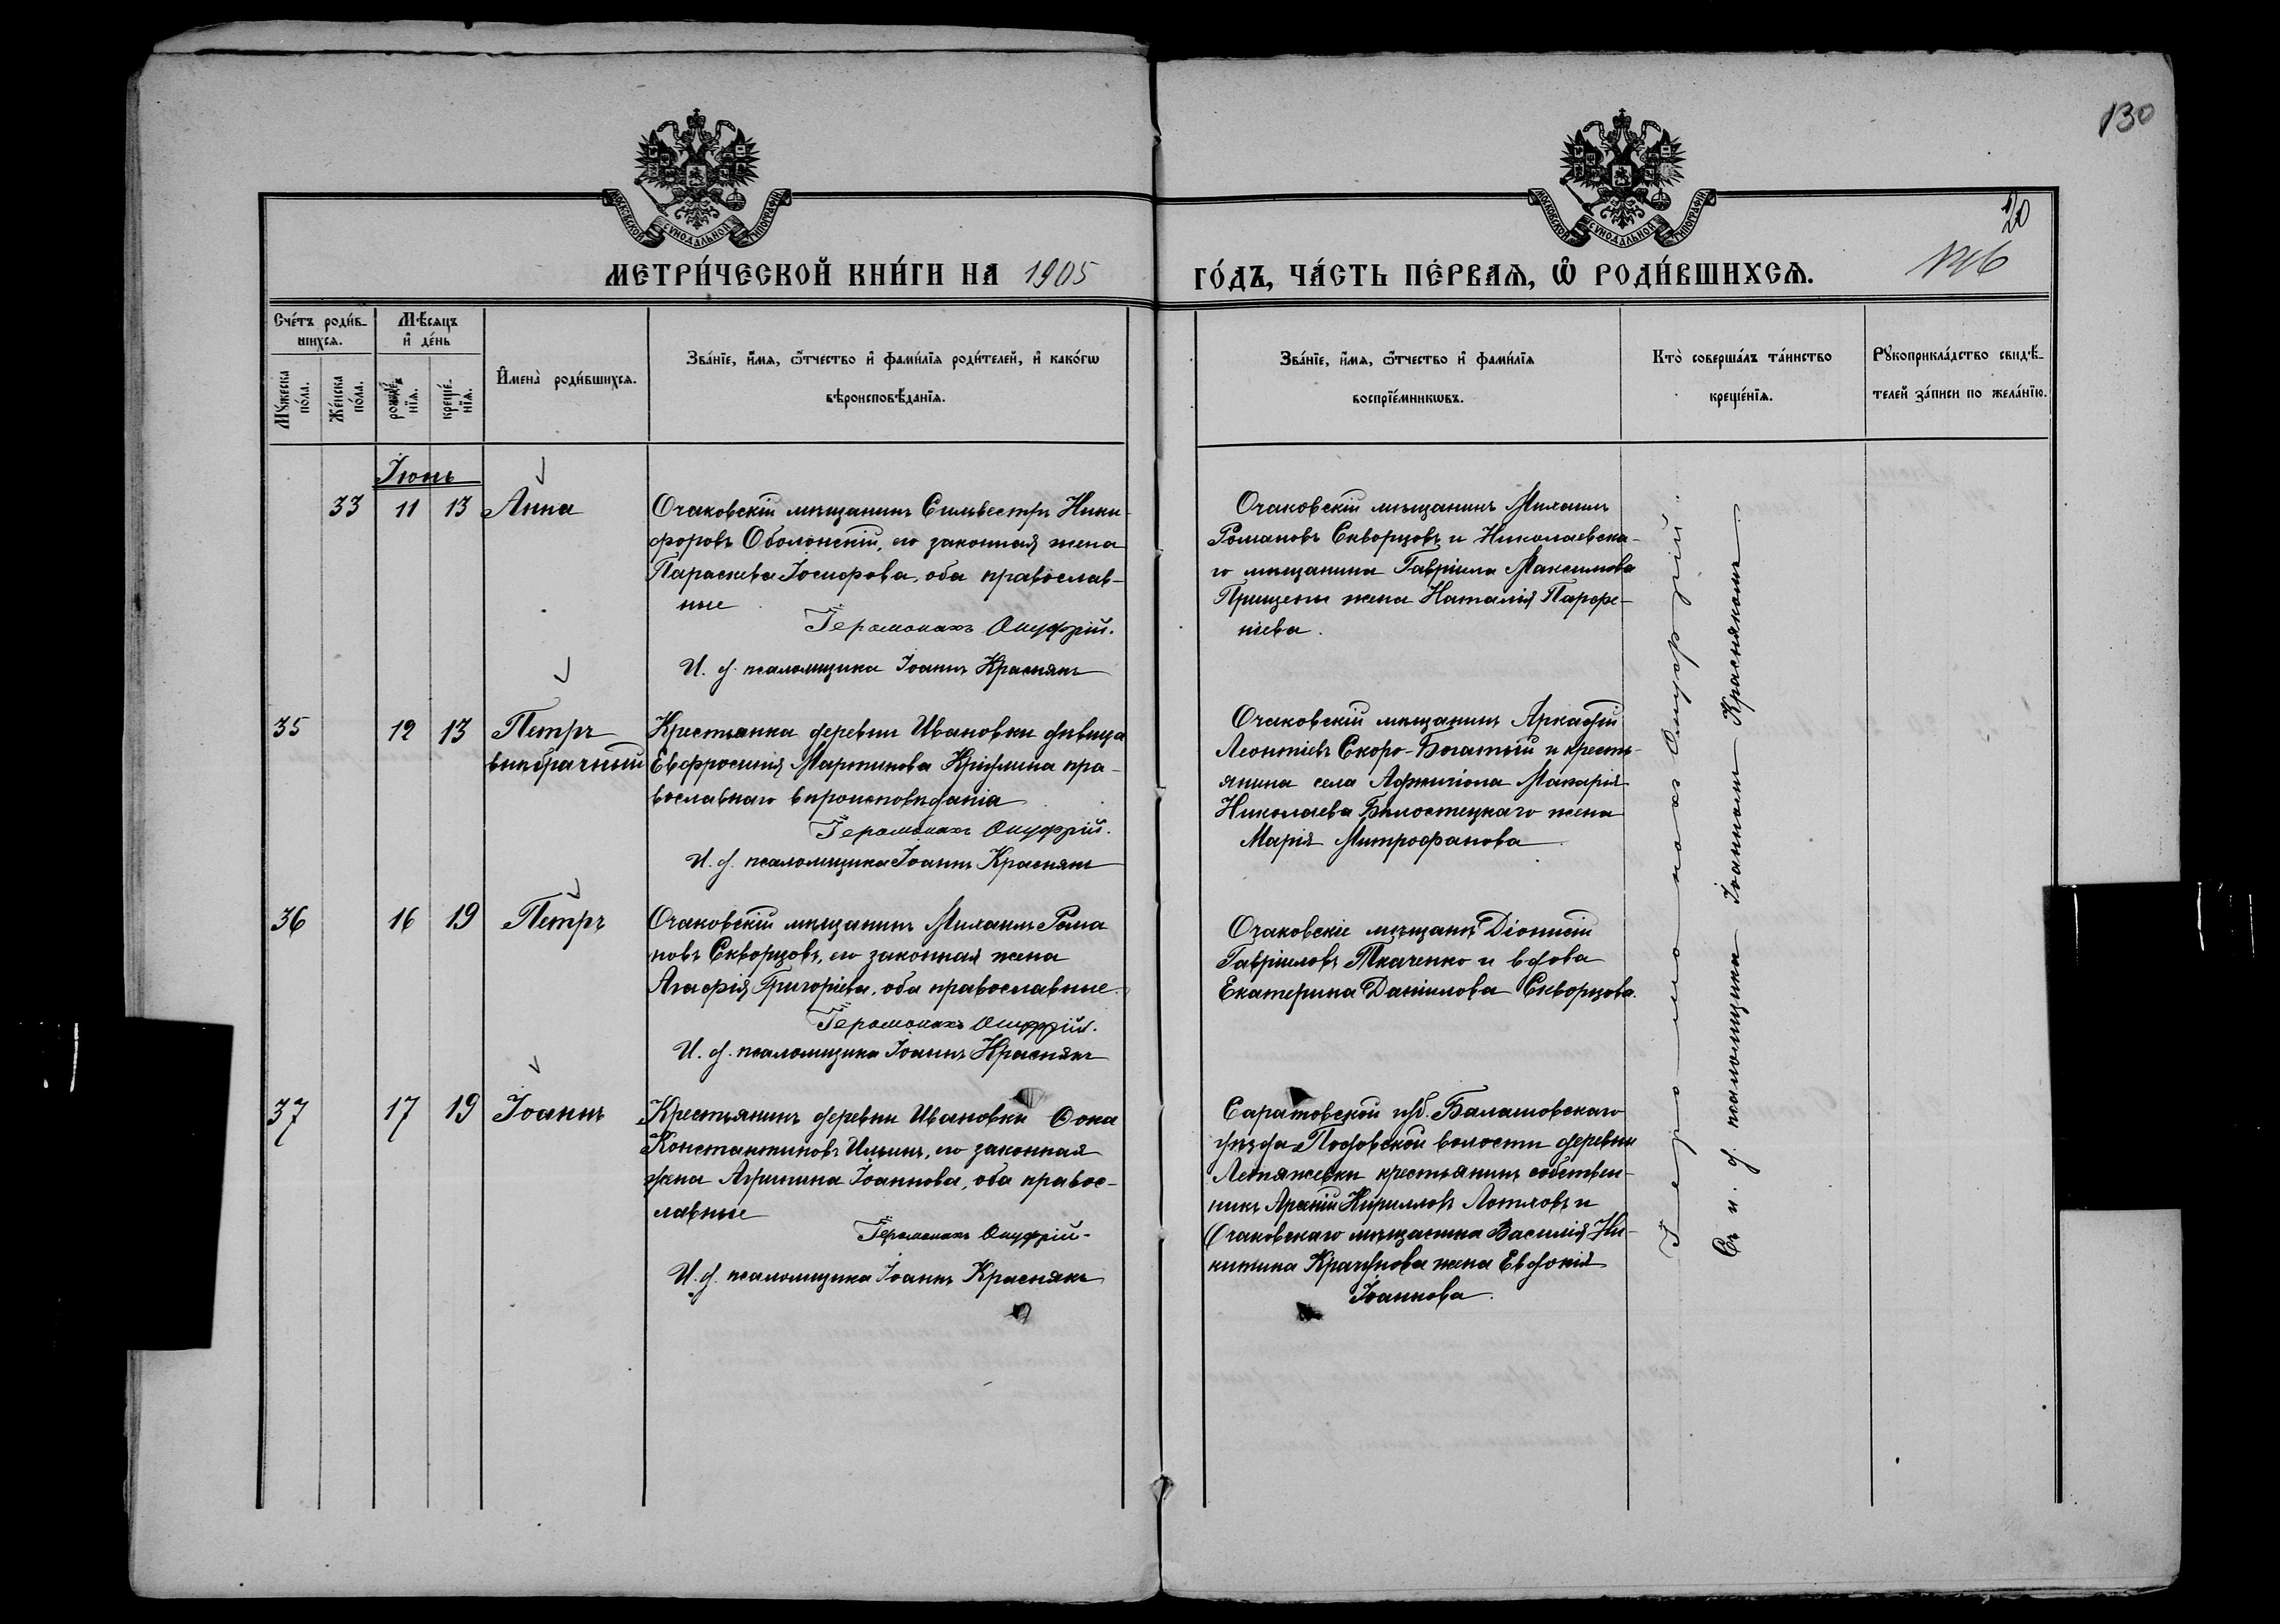 130
20
МОСКОВСКОЙ СѴНОДАЛЬНОЙ ТИПОГРАФІИ
МОСКОВСКОЙ СѴНОДАЛЬНОЙ ТИПОГРАФІИ
МЕТРИ́ЧЕСКОЙ КНИ́ГИ НА 1905
ГО́ДЪ, ЧА́СТЬ ПЕ́РВАѦ, Ѽ РОДИ́ВШИХСѦ.
Сче́тъ роди́в-
шихсѧ.
Мѣ́сѧцъ
и҆ де́нь
Мꙋ́жеска
по́ла.
Же́нска
по́ла.
рожде́-
нїѧ.
креще́-
нїѧ.
И҆мена̀ роди́вшихсѧ.
Зва́нїе, и҆́мѧ, ѻ҆́тчество и҆ фами́лїѧ роди́телей, и҆ како́гѡ
вѣроисповѣ́данїѧ.
Зва́нїе, и҆́мѧ, ѻ҆́тчество и҆ фами́лїѧ
воспрїе́мникѡвъ.
Кто̀ соверша́лъ та́инство
креще́нїѧ.
Рꙋкоприкла́дство свидѣ́-
телей за́писи по жела́нїю.
Іюнь
33 11 13 Анна
Очаковскій мѣщанинъ Сильвестръ Ники-
форовъ Оболонскій, его законная жена
Параскева Іосифова, оба православ-
ные
Іеромонахъ Онуфрій.
И. д. псаломщика Іоаннъ Краснякъ
Очаковскій мѣщанинъ Михаилъ
Романовъ Скворцовъ и Николаевска-
го мѣщанина Гавріила Максимова
Прищепы жена Наталія Парфе-
ніева.
35 12 13 Петръ
внѣбрачный
Крестьянка деревни Ивановки дѣвица
Евфросинія Мартинова Кридина пра-
вославнаго вѣроисповѣданія
Іеромонахъ Онуфрій.
И. д. псаломщика Іоаннъ Краснякъ
Очаковскій мѣщанинъ Аркадій
Леонтіевъ Скоро-Богатый и кресть-
янина села Аджигіола Макарія
Николаева Бѣлостецкаго жена
Марія Митрофанова
36 16 19 Петръ
Очаковскій мѣщанинъ Михаилъ Рома
новъ Скворцовъ, его законная жена
Агафія Григоріева, оба православные.
Іеромонахъ Онуфрій.
И. д. псаломщика Іоаннъ Краснякъ
Очаковскіе мѣщане Діонисій
Гавріиловъ Ткаченко и вдова
Екатерина Даніилова Скворцова.
37 17 19 Іоаннъ
Крестьянинъ деревни Ивановки Ѳома
Константиновъ Ильинъ, его законная
жена Агрипина Іоаннова, оба правос-
лавные
Іеромонахъ Онуфрій.
И. д. псаломщика Іоаннъ Краснякъ
Саратовской губ. Балашовскаго
уѣзда волости деревни
крестьянинъ собствен-
никъ Кирилловъ и
Очаковскаго мѣщанина Василія Ни-
китина жена Евдокія
Іоаннова.
Іеромонахъ Онуфрій.
Съ и. д. псаломщика Іоанномъ Краснякомъ